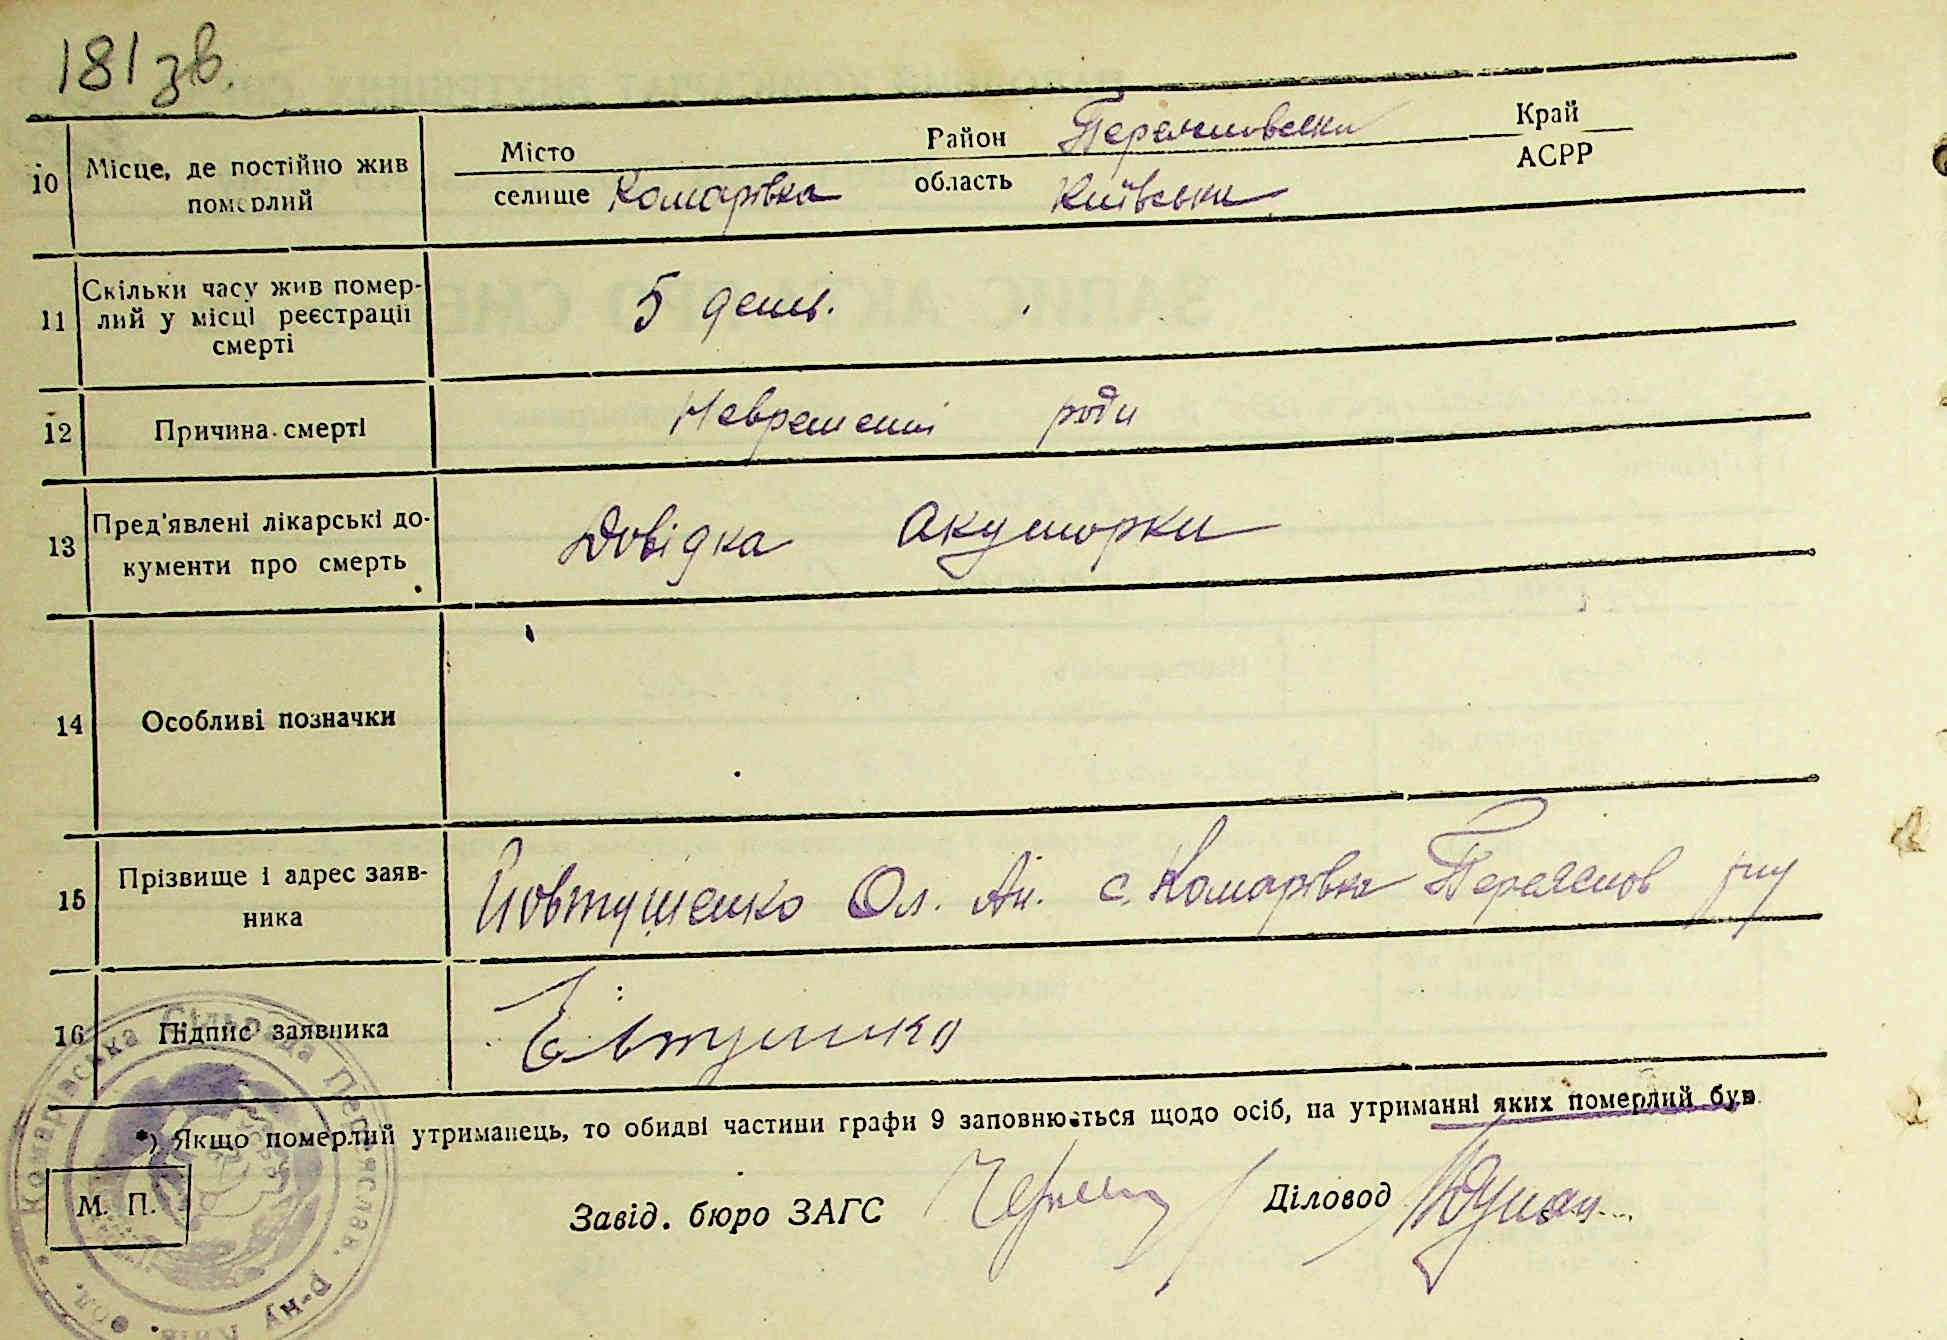 181 зв.
10 Місце, де постійно жив померлий
Місто Район Край
селище Комарівка область Київська АСРР
11 Скільки часу жив помер-
лий у місці реєстрації
смерті
5 день.
12 Причина смерті
роди
13 Пред'явлені лікарські до-
кументи про смерть
Довідка акушорки
14 Особливі позначки
15 Прізвище і адрес заяв-
ника
Йовтушенко Ол. Ан. с. Комарівка Переяслов р-ну
16 Підпис заявника
*) Якщо померлий утриманець, то обидві частини графи 9 заповнюється щодо осіб, на утриманні яких померлий був
М. П.
Завід. бюро ЗАГС
Діловод
Комарівська Сільрада Переяслав. р-ну Київ. обл.